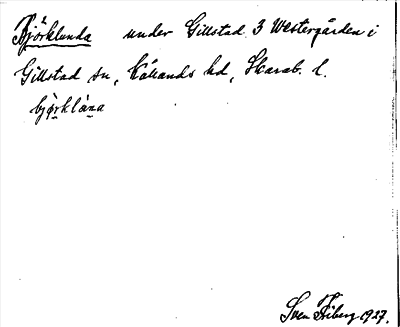 Björklunda under Gillstad 3 Westergården i
Gillstad sn, Kållands hd, Skarab. l.
bjørklåna
Sven Friberg 1927.